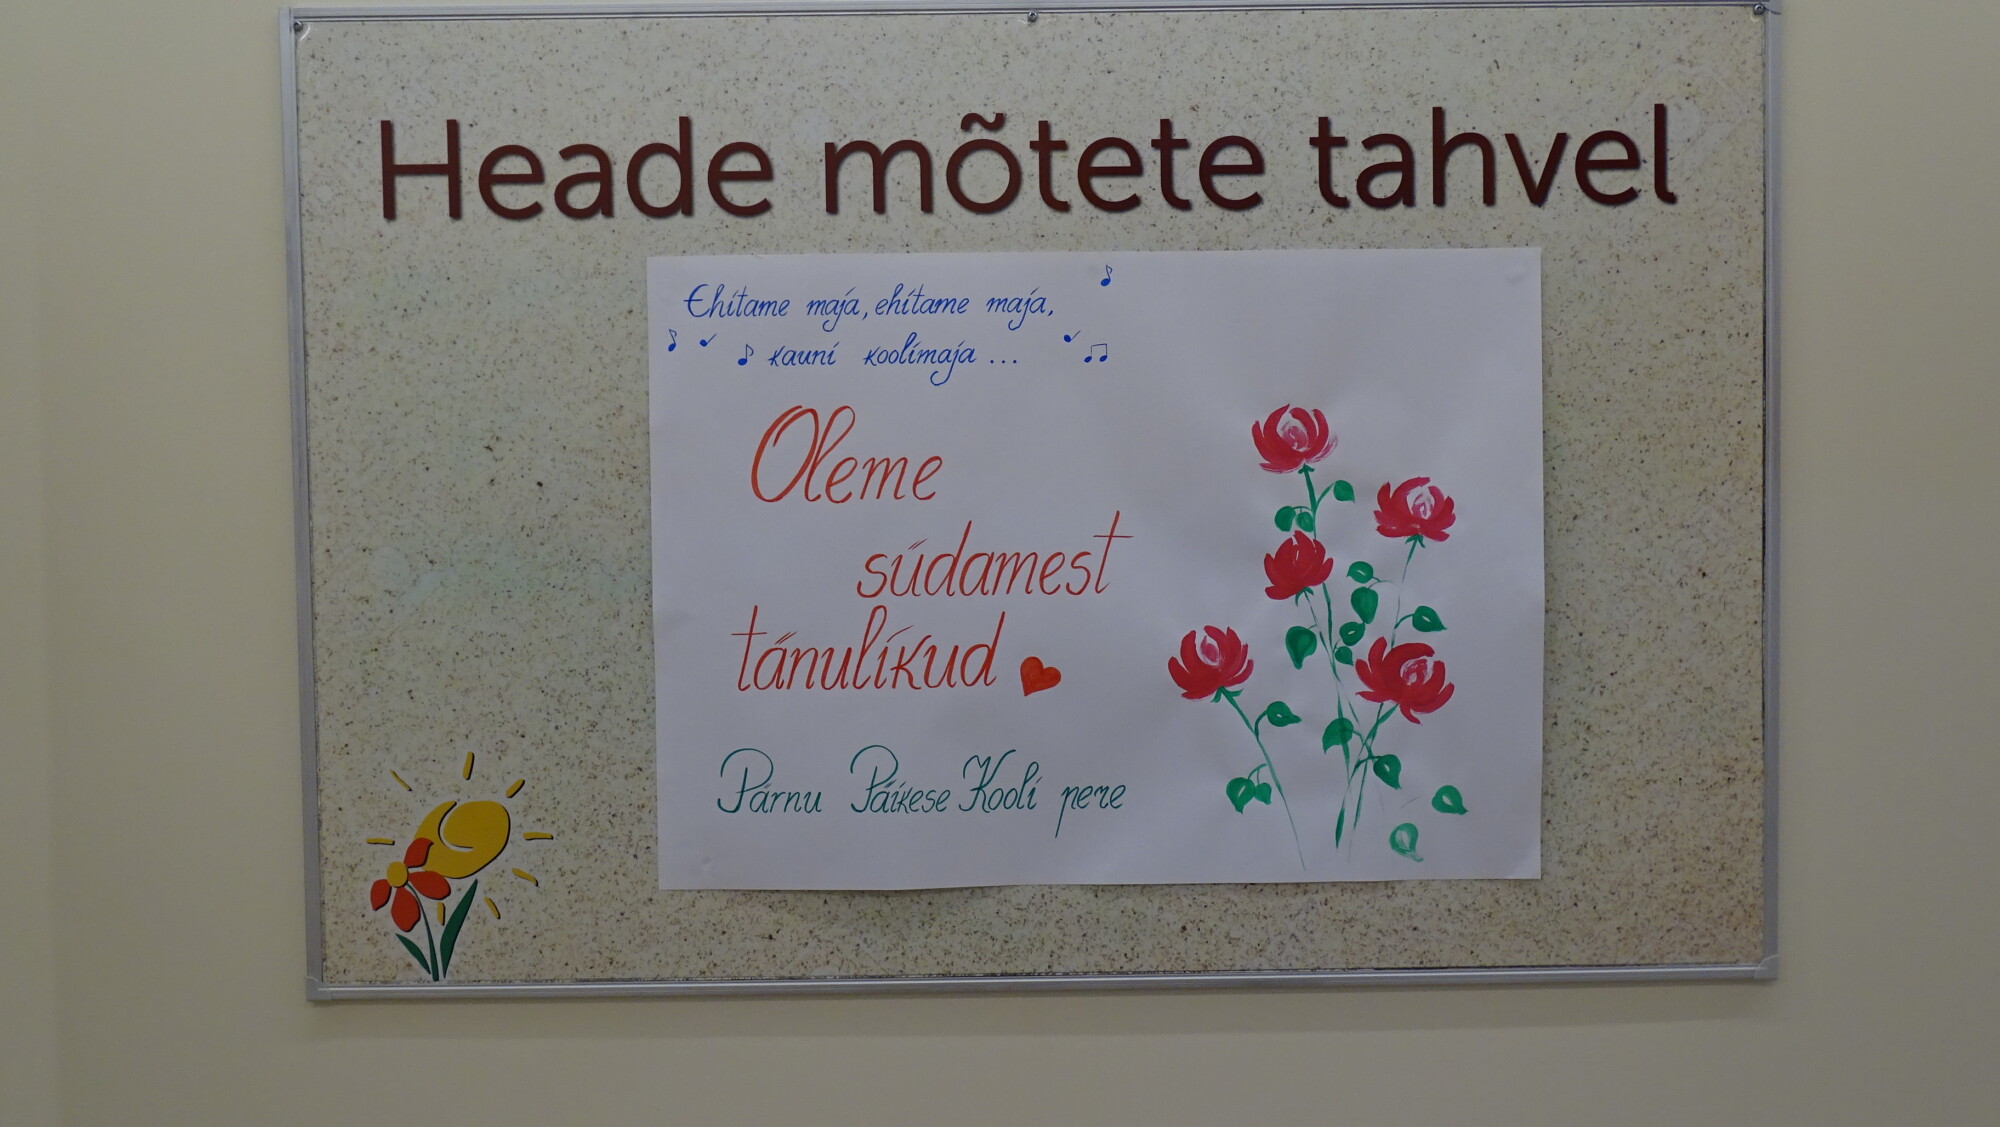 Heade mõtete tahvel
Ehitame maja, ehitame maja,
kauni koolimaja ...
Oleme
südamest
tänulikud
Pärnu Päikese Kooli pere